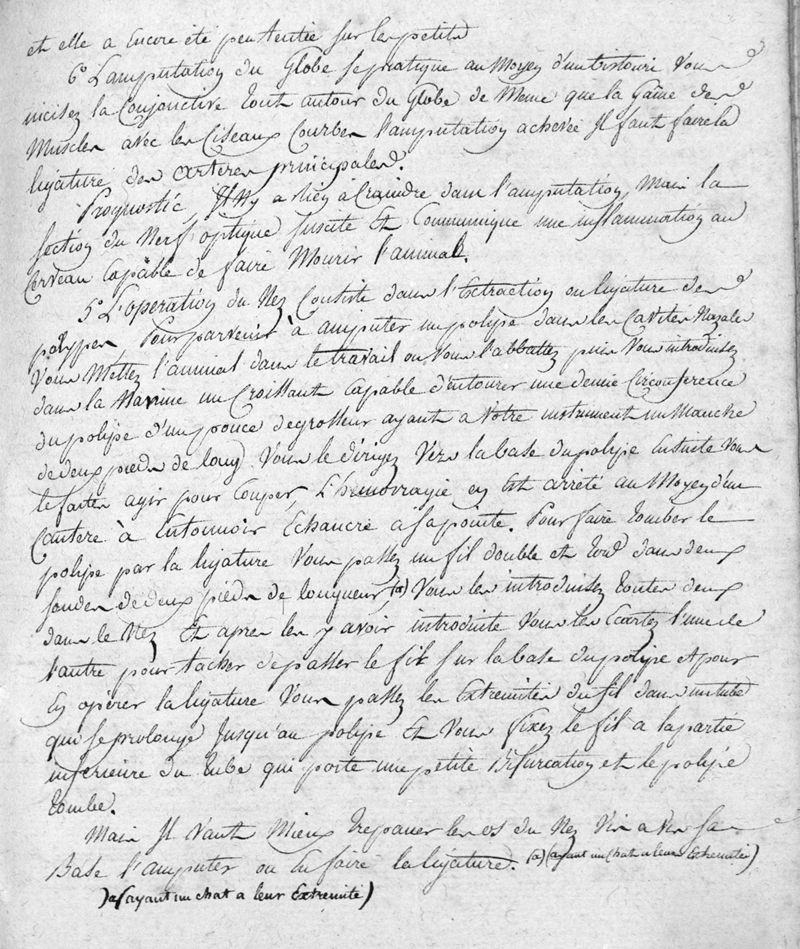 et elle a Encore été peu tentée sur les petits
6° L'amputation du Globe se pratique au Moyen d'un bistouri Vous
incisez la Conjonctive tout autour du Globe de Meme que la Gaîne des
Muscles avec les Ciseaux Courbes l'amputation achevée Il faut faire la
ligature des artères principales.
Prognostic, Il N'y a rien à Craindre dans l'amputation, Mais la
section du Nerf optique suscite Et Communique une inflammation au
Cerveau Capable de faire Mourir l'animal.
5° L'operation du Nez Consiste dans l'Extraction ou ligature des
polypes Pour parvenir à amputer un polype dans les Cavites Nazales
Vous Mettez l'animal dans le travail ou Vous l'abbattez puis Vous introduisez
dans la Narine un Croissant Capable d'entourer une demie Circonference
du polipe d'un pouce de grosseur ayant a Votre instrument un Manche
de deux pieds de long. Vous le dirigez Vers la base du polipe Ensuite Vous
le faites agir pour Couper, L'hemorragie en Est arrêté au Moyen d'un
Cautere à Entonnoir Echancré à sa pointe. Pour faire tomber le
polipe par la ligature Vous passez un fil double et dans deux
sondes de deux pieds de longueur (a) Vous les introduisez toutes deux
dans le Nez Et apres les y avoir introduite Vous les Ecartez l'une de
l'autre pour tacher de passer le fil sur la base du polipe et pour
En opérer la ligature Vous passez les Extremités du fil dans un tube
qui se prolonge Jusqu'au polipe Et Vous fixez le fil a la partie
inferieure du tube qui porte une petite Bifurcation et le polipe
tombe.
Mais Il Vaut Mieux trepaner les os du Nez Vis a Vis sa
Base l'amputer ou En faire la ligature. (a) (ayant un Chat a leur Extremité)
)a(ayant un chat a leur Extremité)